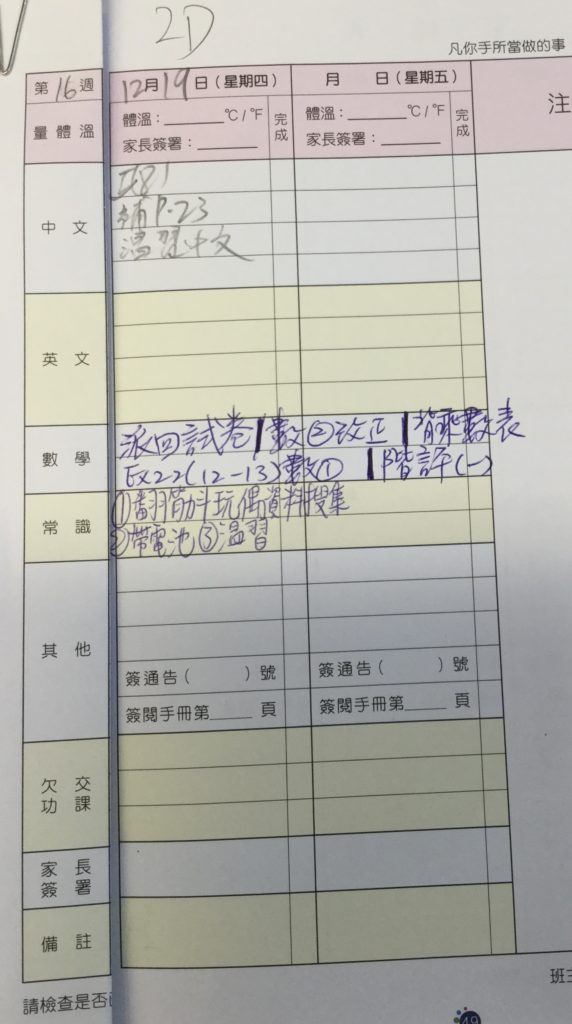 2D
凡你手所當做的事
第16週
12月19日(星期四)
月 日(星期五)
注
量體溫
體溫:______°C/°F
家長簽署:______
完成
體溫:______°C/°F
家長簽署:______
完成
中文
補P.23
溫習中文
英文
數學
派回試卷|數②改正|背乘數表
Ex22(12-13)數①|階評(一)
常識
①翻筋斗玩偶資料搜集
②帶電池③溫習
其他
簽通告( )號
簽通告( )號
簽閱手冊第____頁
簽閱手冊第____頁
欠交功課
家長簽署
備註
請檢查是否
班主
49